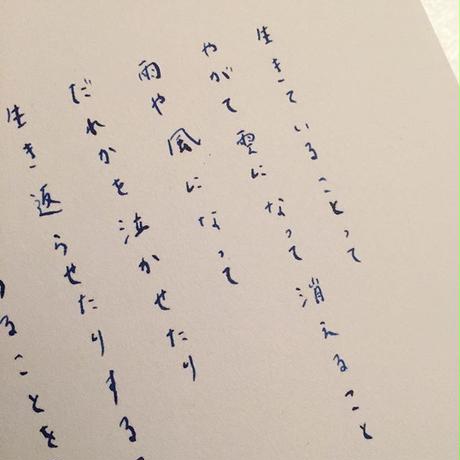 生きていることって
やがて雲になって消えること
雨や風になって
だれかを泣かせたり
生き返らせたりする
ることを